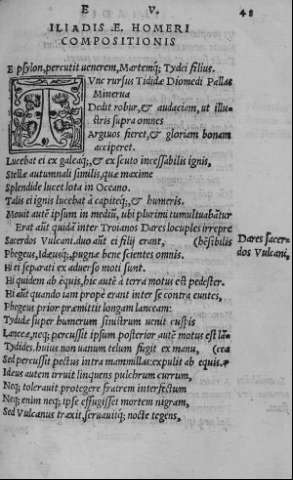 E V. 48
ILIADIS Æ. HOMERI
COMPOSITIONIS
E psylon, percutit uenerem, Martemq; Tydei filius.
TVnc rursus Tididæ Diomedi Pallas
Minerua
Dedit robur, & audaciam, ut illu-
stris supra omnes
Argiuos fieret, & gloriam bonam
acciperet.
Lucebat ei ex galeaq;, & ex scuto incessabilis ignis,
Stellæ autumnali similis, quæ maxime
Splendide lucet lota in Oceano.
Talis ei ignis lucebat à capiteq;, & humeris.
Mouit autē ipsum in mediū, ubi plurimi tumultuabātur
Erat aūt quidā inter Troianos Dares locuples irrepre
Sacerdos Vulcani. duo aūt ei filij erant, (hēsibilis
Dares sacer-
dos Vulcani,
Phegeus, Idæusq;, pugnæ bene scientes omnis.
Hi ei separati ex aduerso moti sunt.
Hi quidem ab equis, hic autē à terra motus est pedester.
Hi aūt quando iam propè erant inter se contra euntes,
Phegeus prior præmittit longam lanceam:
Tydidæ super humerum sinistrum uenit cuspis
Lanceæ, neq; percussit ipsum. posterior autē motus est lā-
Tydides. huius non uanum telum fugit ex manu, (cea
Sed percussit pectus intra mammillas: expulit ab equis.
Ideus autem irruit linquens pulchrum currum,
Neq; tolerauit protegere fratrem interfectum
Neq; enim neq; ipse effugisset mortem nigram,
Sed Vulcanus traxit, seruauitq; nocte tegens,